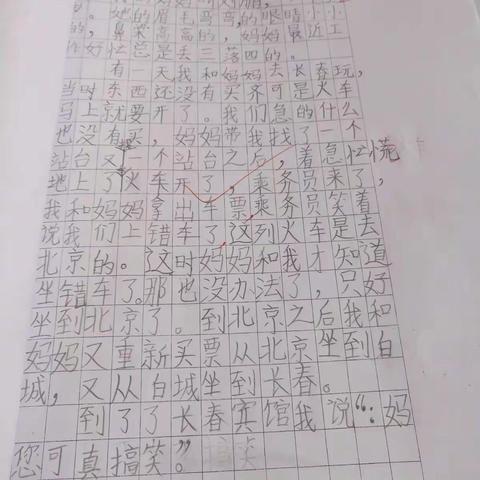 。她的眉毛弯弯的眼睛小小
，鼻梁高高的，妈妈最近工
作好忙总是丢三落四的。
有一天我和妈妈去长春玩，
当时东西还没有买齐可是火车
马上就要开了。我们急的什么
也没有买，妈妈带我找了一个
站台又一个站台之后，着急忙慌
地上了火车开了，乘务员来了，
我和妈妈拿出车票乘务员笑着
说我们上错车了，这列火车是去
北京的。这时妈妈和我才知道
坐错车了。那也没办法了，只好
坐到北京了。到北京之后我和
妈妈又重新买票从北京坐到白
城，又从白城坐到长春。
到了了长春宾馆我说“：妈
您可真搞笑”。